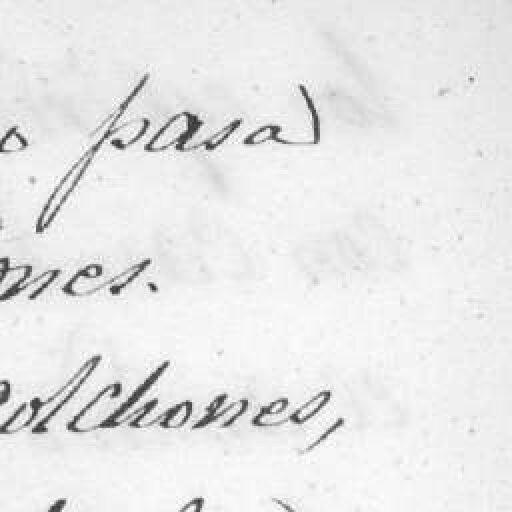 o pasa
ones.
Colchones,